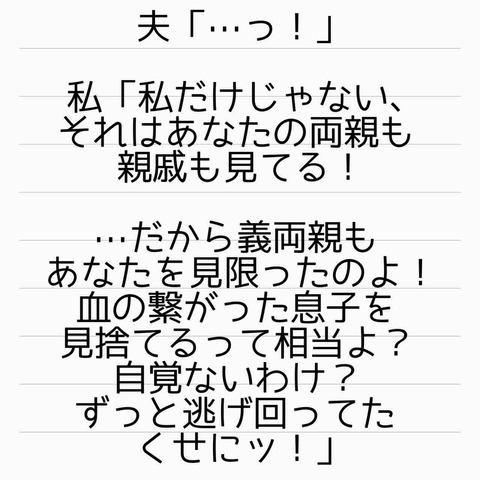 夫「…っ！」
私「私だけじゃない、
それはあなたの両親も
親戚も見てる！
…だから義両親も
あなたを見限ったのよ！
血の繋がった息子を
見捨てるって相当よ？
自覚ないわけ？
ずっと逃げ回ってた
くせにッ！」